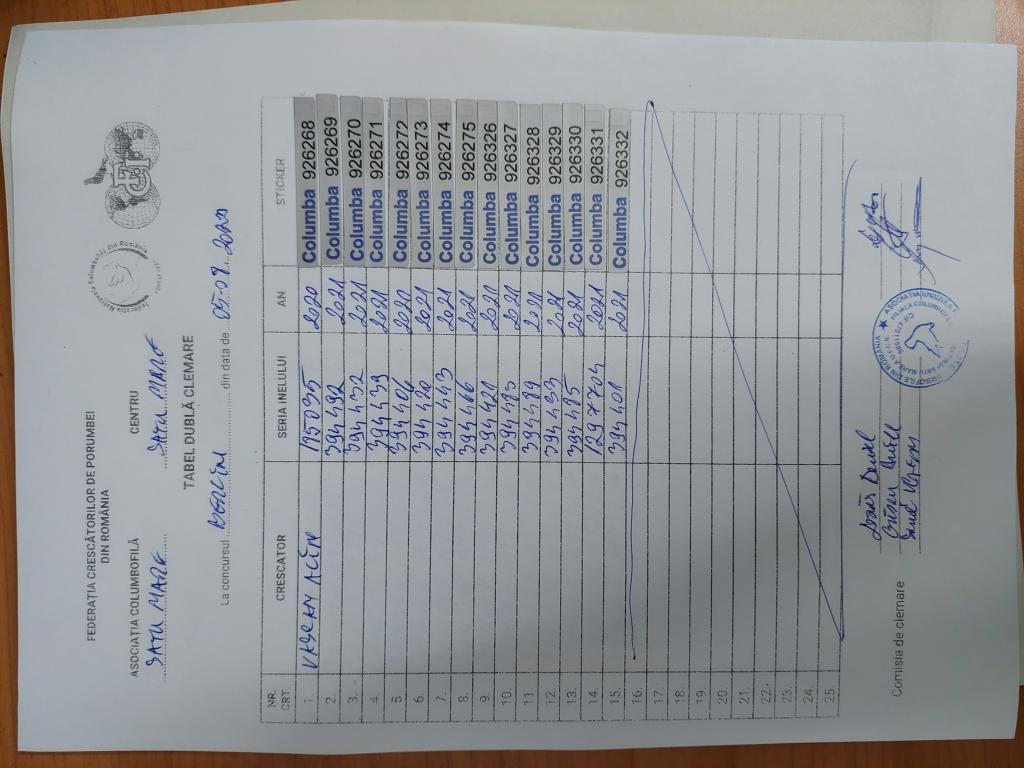 FEDERAȚIA CRESCĂTORILOR DE PORUMBEI
DIN ROMÂNIA
ASOCIAȚIA COLUMBOFILĂ
SATU MARE
CENTRU
SATU MARE
Federația Națională Columbofilă din România
FCI
TABEL DUBLĂ CLEMARE
La concursul din data de
NR. CRT. CRESCATOR SERIA INELULUI AN STICKER
1. VASKAN ALIN 195035 2020 Columba 926268
2. 394492 2021 Columba 926269
3. 394432 2021 Columba 926270
4. 394439 2021 Columba 926271
5 394404 2020 Columba 926272
6. 394420 2021 Columba 926273
7. 394443 2021 Columba 926274
8. 394466 2021 Columba 926275
9. 394421 2021 Columba 926326
10. 394493 2021 Columba 926327
11 394499 2021 Columba 926328
12. 394433 2021 Columba 926329
13. 394495 2021 Columba 926330
14. 1297704 2021 Columba 926331
15. 394401 2021 Columba 926332
16.
17.
18.
19.
20.
21.
22.
23.
24.
25.
Comisia de clemare